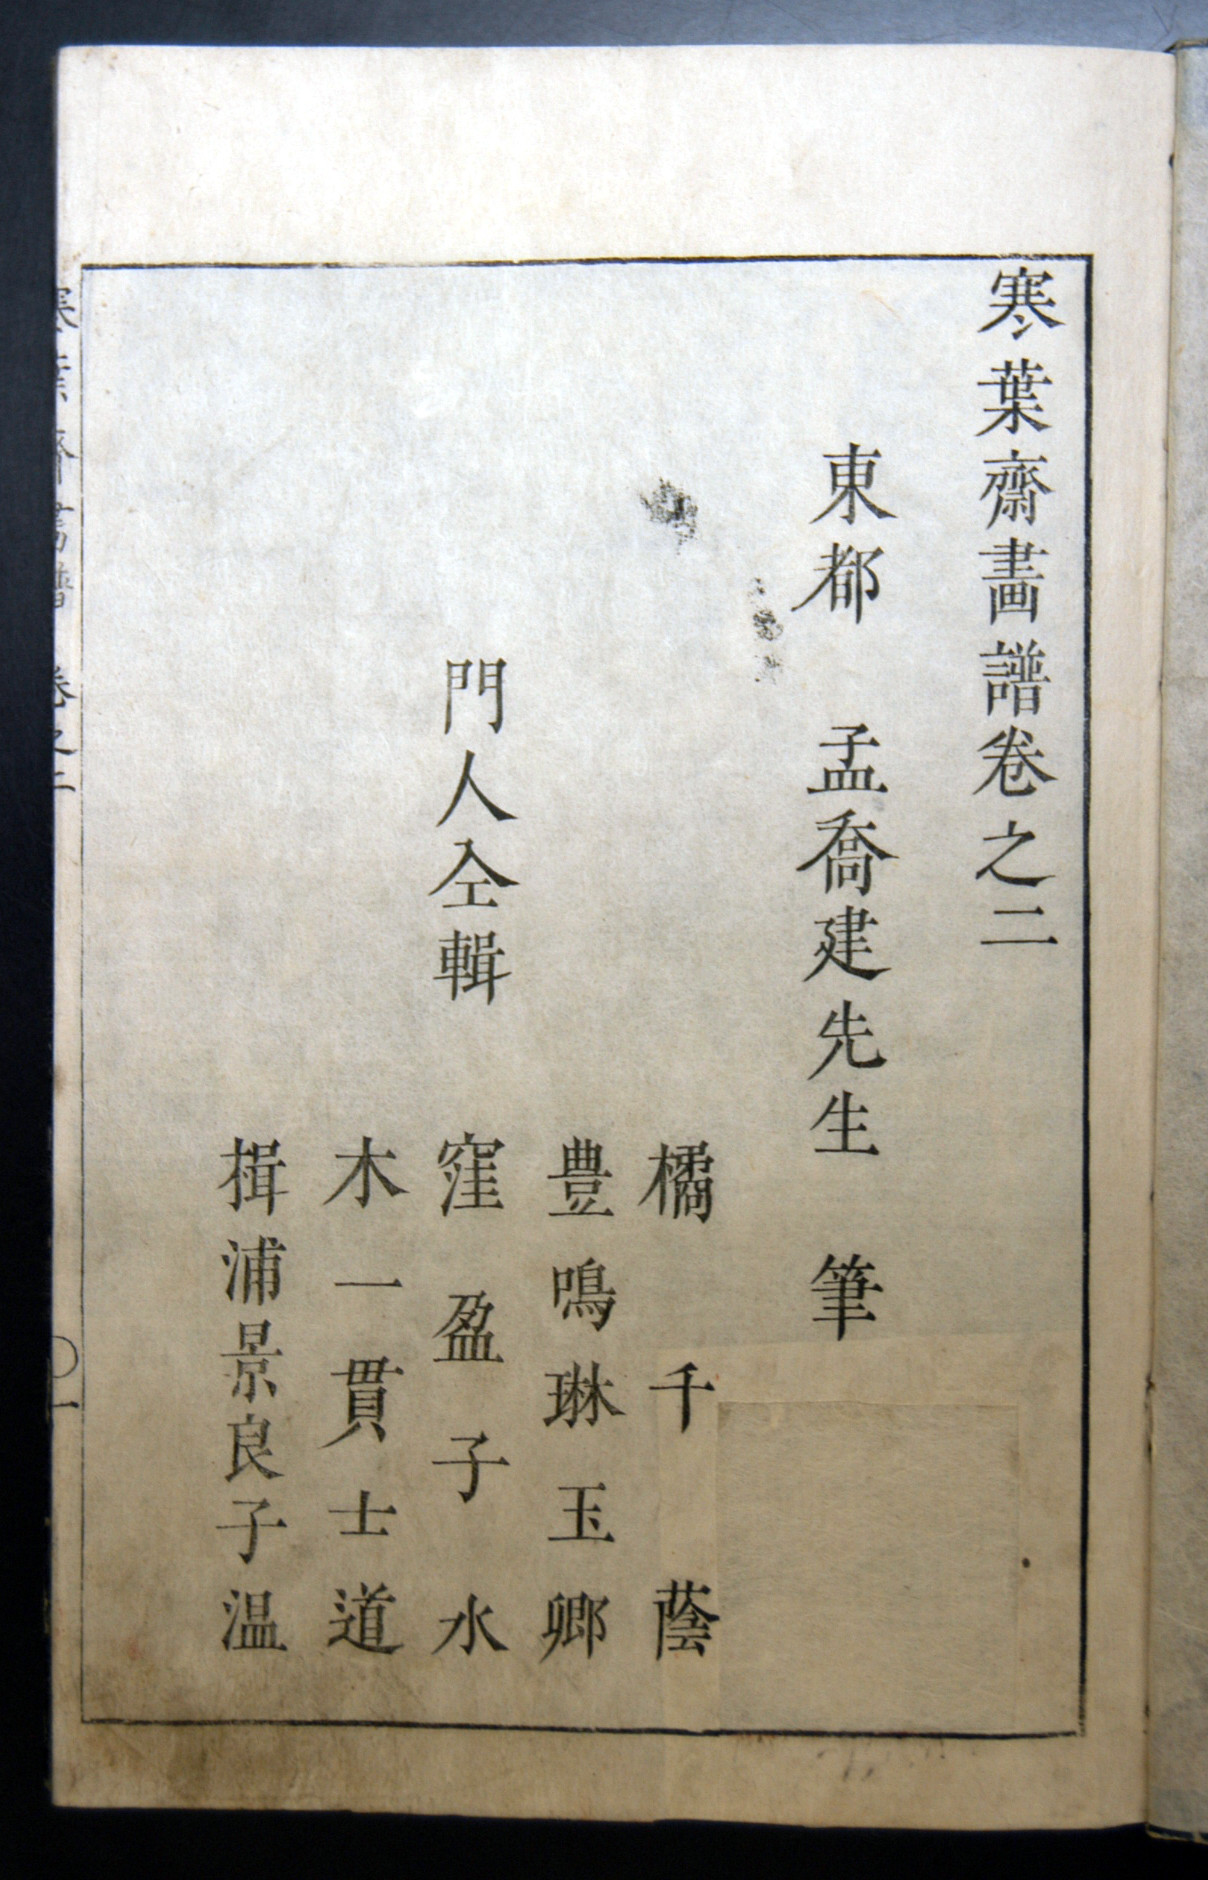 寒葉齋畫譜卷之二
東都 孟喬建先生 筆
橘千蔭
豊鳴琳玉卿
門人仝輯 窪盈子水
木一貫士道
楫浦景良子温
寒葉齋畫譜 卷之二 〇一